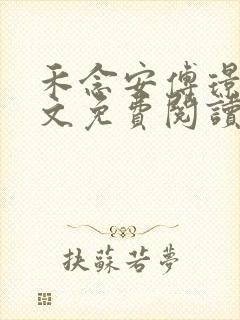 禾念安傅璟
文免費閱讀
扶蘇若夢